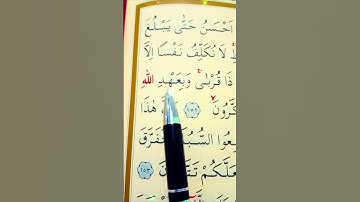 اَحْسَنُ حَتّٰى يَبْلُغَ
لَا نُكَلِّفُ نَفْسًا اِلَّا
ذَا قُرْبٰى وَبِعَهْدِ اللّٰهِ
كَّرُونَ ١٥٢ هٰذَا
عُوا السُّبُلَ فَتَفَرَّقَ
عَلَّكُمْ تَتَّقُونَ ١٥٣